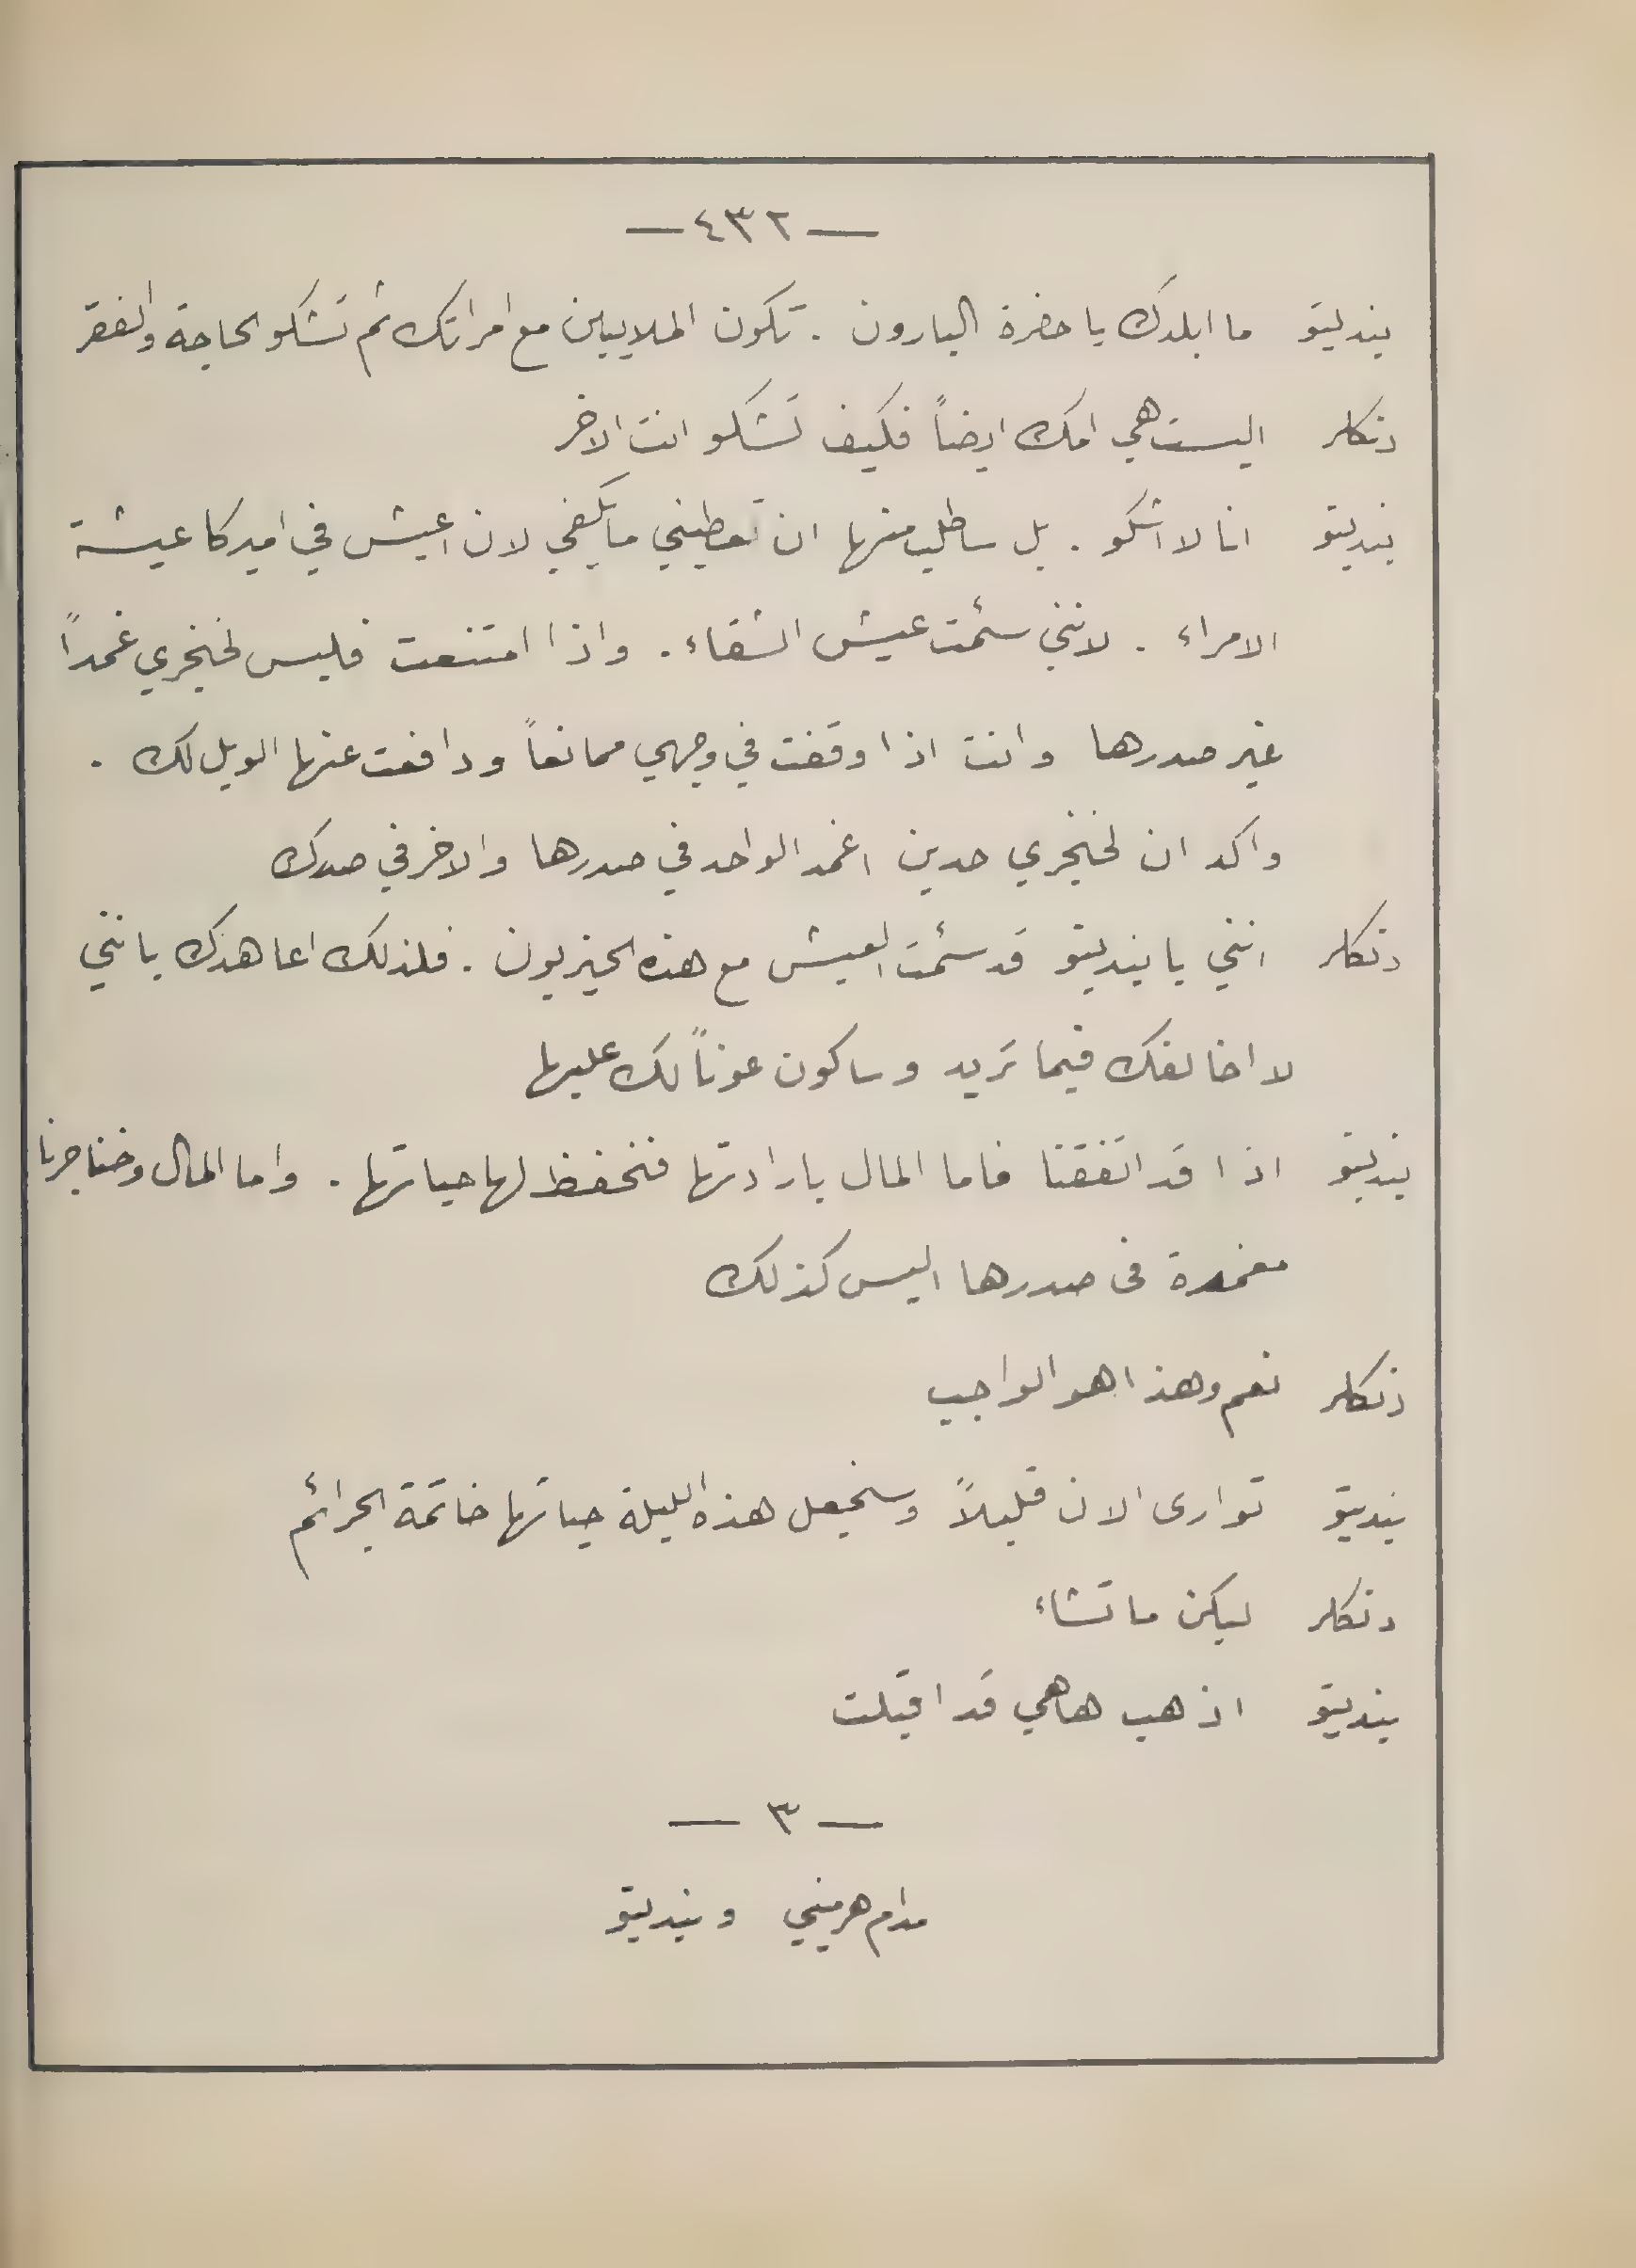 — ٤٣٢ —
بندليتو ما ابلدك يا حضرة البارون . تكون الملايين مع امراتك ثم تشكو الحاجة والفقر
دنكلر اليست هي امك ايضاً فكيف تشكو انت الاخر
بندليتو انا لا اشكو . بل ساطلب منها ان تعطيني ما يكفي لان اعيش في اميركا عيشة
الامراء . لانني سئمت عيش الشقاء . واذا امتنعت فليس لخنجري غمداً
غير صدرها وانت اذا وقفت في وجهي ممانعاً ودافعت عنها الويل لك .
واكد ان لخنجري حدين اغمد الواحد في صدرها والاخر في صدرك
دنكلر انني يا بندليتو قد سئمت العيش مع هذه الحيزبون . فلذلك اعاهدك بانني
لا اخالفك فيما تريد وساكون عوناً لك عليها
بندليتو اذا قد اتفقنا فاما المال بارادتها فنحفظ لها حياتها . واما المال وخناجرنا
مغمدة في صدرها اليس كذلك
دنكلر نعم وهذا هو الواجب
بندليتو توارى الان قليلاً وسنجعل هذه الليلة حياتها خاتمة الجرائم
دنكلر ليكن ما تشاء
بندليتو اذهب ها هي قد اقبلت
— ٣ —
مدام هرميني و بندليتو